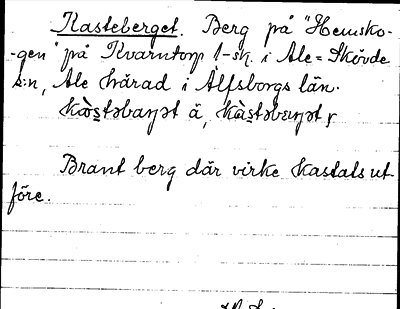 Kasteberget. Berg på "Hemsko-
-gen" på Kvarntorp 1-sk. i Ale=Skövde
k:n, Ale härad i Älfsborgs län.
Brant berg där virke kastats ut-
före.